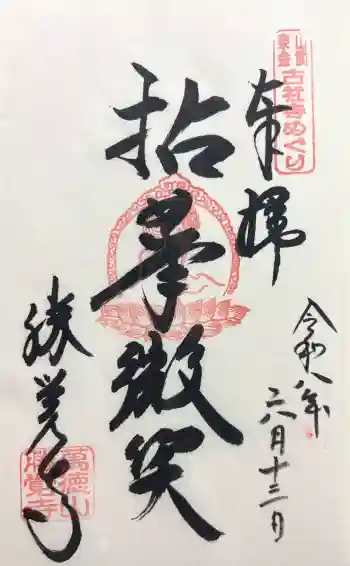 山武
東金
古社寺めぐり
奉拝
令和八年
六月十三日
拈華微笑
勝覚寺
萬徳山
勝覺寺